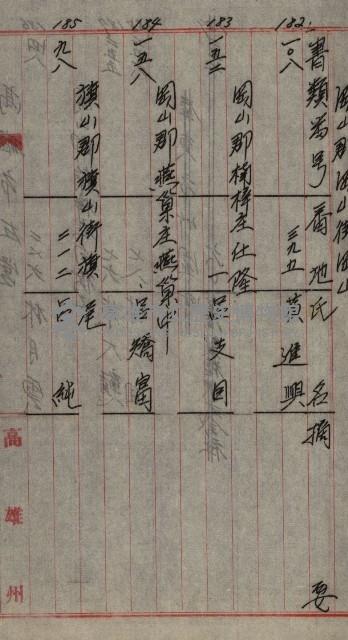 書類番号 番地 氏名 摘要
182.
一〇八
岡山郡岡山街岡山
三九五
黃進興
183
一五二
岡山郡楠梓庄仕隆
一
呂支回
184
一五八
岡山郡燕巢庄燕巢
呂矯富
185
一九八
旗山郡旗山街旗尾
二一二
呂純
高雄州